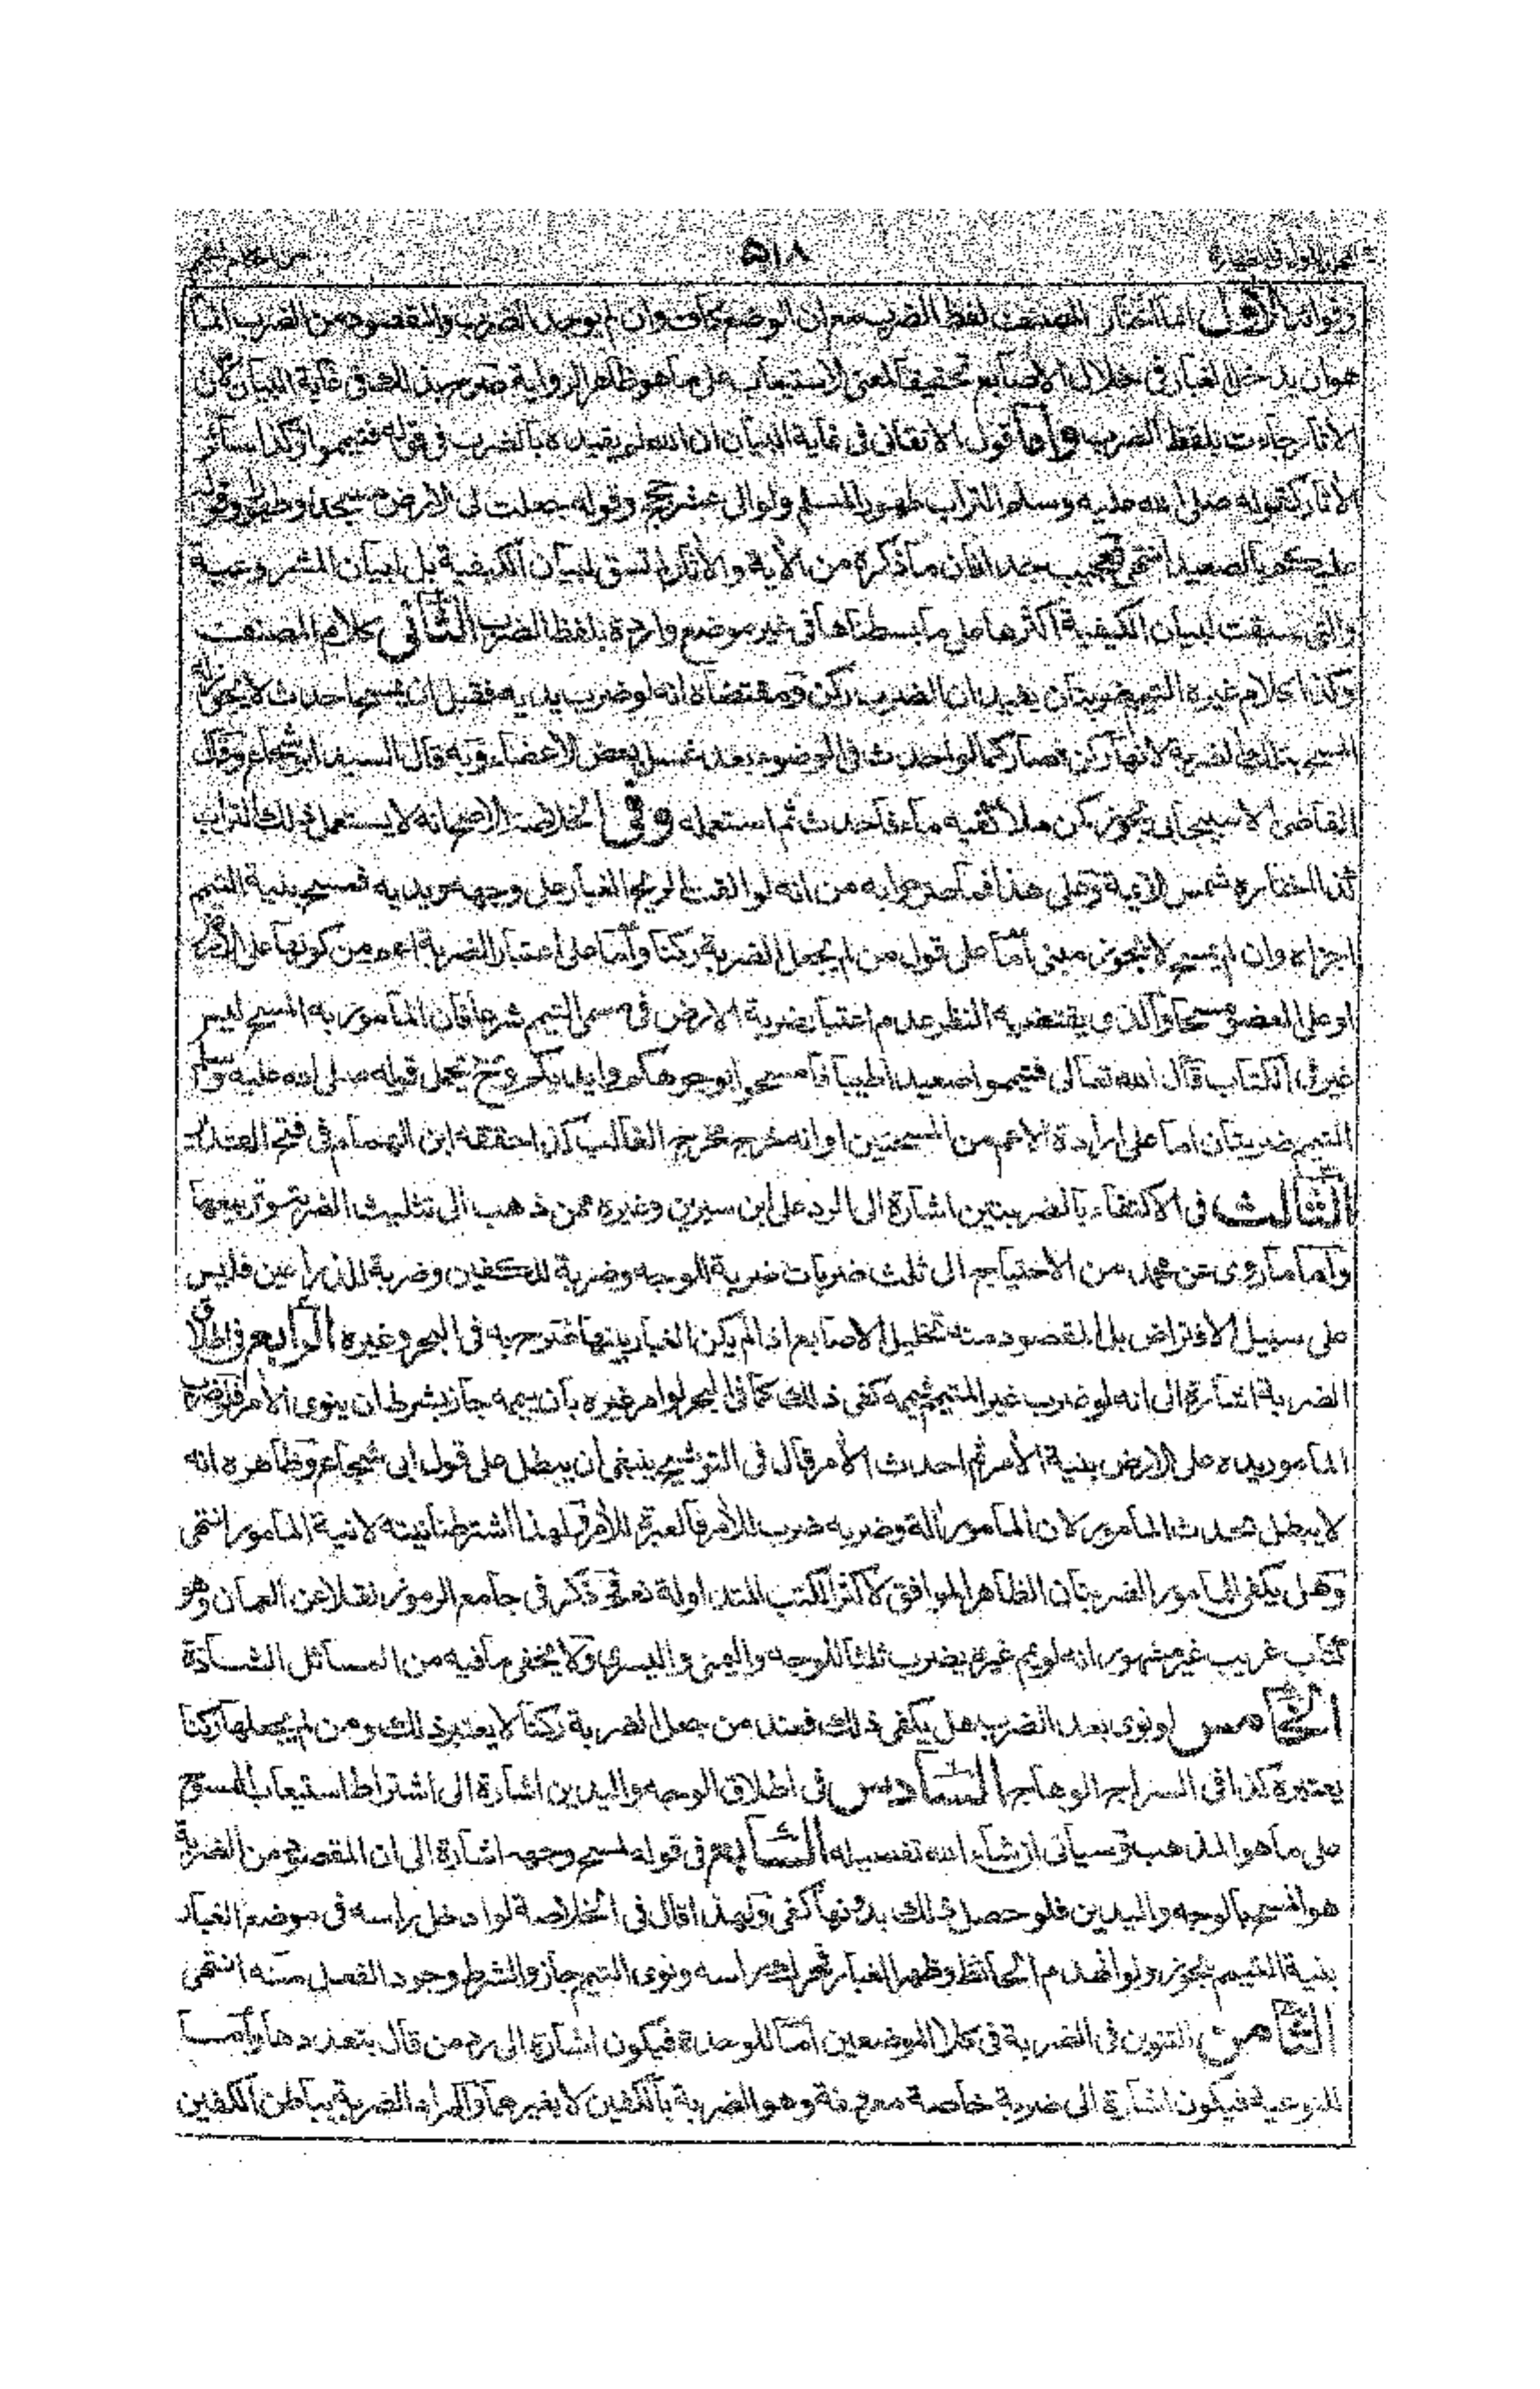 ٥١٨
الاول انما اختار المصنف لفظ الضرب مع ان الوضع كاف وان لم يوجد الضرب والمقصود من الضرب انما
هو ان يدخل الغبار فى خلال الاصابع تحقيقا لمعنى الاستيعاب على ما هو ظاهر الرواية صرح بذلك فى غاية البيان لان
الآثار جاءت بلفظ الضرب واما قول الاتقانى فى غاية البيان ان الله لم يقيده بالضرب فى قوله فتيمموا وكذا سائر
الآثار كقوله صلى الله عليه وسلم التراب طهور المسلم ولو الى عشر حجج وقوله جعلت لى الارض مسجدا وطهورا وقوله
عليكم بالصعيد انتهى فعجيب جدا فان ما ذكره من الآية والآثار لم تسق لبيان الكيفية بل لبيان المشروعية
والتى سيقت لبيان الكيفية اكثرها على ما بسطناها فى غير موضع واردة بلفظ الضرب الثانى كلام المصنف
وكذا كلام غيره التيمم ضربتان يفيد ان الضرب ركن ومقتضاه انه لو ضرب يديه فقبل ان يمسح احدث لا يجوز له
المسح بتلك الضربة لانها ركن فصار كما لو احدث فى الوضوء بعد غسل بعض الاعضاء وبه قال السيد ابو شجاع وقال
القاضى الاسبيجابى يجوز كمن ملأ كفيه ماء فاحدث ثم استعمله وفى الخلاصة الاصح انه لا يستعمل ذلك التراب
كذا اختاره شمس الائمة وعلى هذا فما صرحوا به من انه لو القت الريح الغبار على وجهه ويديه فمسح بنية التيمم
اجزاه وان لم يمسح لا يجوز مبنى اما على قول من لم يجعل الضربة ركنا واما على اعتبار الضربة اعم من كونها على الارض
او على العضو مسحا والذى يقتضيه النظر عدم اعتبار ضربة الارض فى مسمى التيمم شرعا فان المامور به المسح ليس
غير فى الكتاب قال الله تعالى فتيمموا صعيدا طيبا فامسحوا بوجوهكم وايديكم وح يحمل قوله صلى الله عليه وسلم
التيمم ضربتان اما على ارادة الاعم من المسحتين او انه خرج مخرج الغالب كذا حققه ابن الهمام فى فتح القدير
الثالث فى الاكتفاء بالضربتين اشارة الى الرد على ابن سيرين وغيره ممن ذهب الى تثليث الضربة وتربيعها
واما ما روى عن محمد من الاحتياج الى ثلث ضربات ضربة للوجه وضربة للكفين وضربة للذراعين فليس
على سبيل الافتراض بل المقصود منه تخليل الاصابع اذا لم يكن الغبار بينها صرح به فى البحر وغيره الرابع فى اطلاق
الضربة اشارة الى انه لو ضرب غير المتيمم ييممه كفى ذلك كما فى البحر لو امر غيره بان ييممه جاز بشرط ان ينوى الآمر فلو ضرب
المامور يده على الارض بنية الآمر ثم احدث الآمر قال فى التوشيح ينبغى ان يبطل على قول ابى شجاع وظاهره انه
لا يبطل بحدث المامور لان المامور آلة وضربه ضرب للآمر فالعبرة للآمر لهذا اشترطنا نيته لا نية المامور انتهى
وهل يكفى المامور الضربتان الظاهر الموافق لاكثر الكتب المتداولة نعم وذكر فى جامع الرموز نقلا عن العمان وهو
كتاب غريب غير مشهور انه لو يمم غيره يضرب ثلثا للوجه واليمنى واليسرى ولا يخفى ما فيه من المسائل الشاذة
الخامس لو نوى بعد الضرب هل يكفى ذلك فعند من جعل الضربة ركنا لا يعتبر ذلك ومن لم يجعلها ركنا
يعتبره كذا فى السراج الوهاج السادس فى اطلاق الوجه واليدين اشارة الى اشتراط استيعاب المسح
على ما هو المذهب وسيأتى ان شاء الله تفصيله السابع فى قوله لمسح وجهه اشارة الى ان المقصود من الضربة
هو المسح بالوجه واليدين فلو حصل ذلك بدونها كفى ولهذا قال فى الخلاصة لو ادخل راسه فى موضع الغبار
بنية التيمم يجوز ولو انهدم الحائط وظهر الغبار فحرك راسه ونوى التيمم جاز والشرط وجود الفعل منه انتهى
الثامن التنوين فى الضربة فى كلا الموضعين اما للوحدة فيكون اشارة الى رد من قال بتعددها واما
للنوعية فيكون اشارة الى ضربة خاصة معروفة وهو الضربة بالكفين لا بغيرهما والمراد الضربة بباطن الكفين